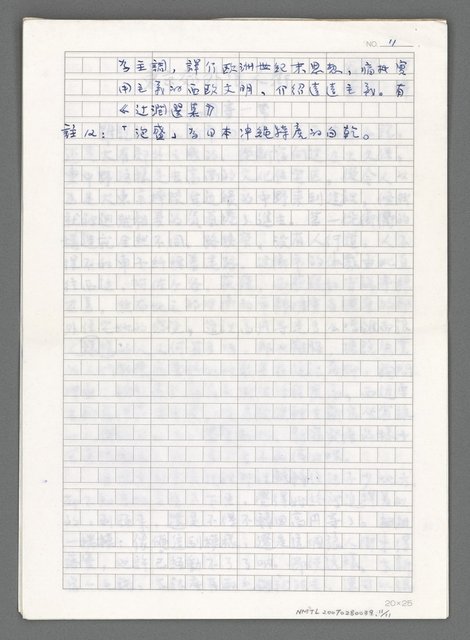 NO. 11
為主調，評介歐洲世紀末思想，痛批實
用主義的西歐文明，介紹達達主義。有
《辻潤選集》
註12：「泡盛」為日本沖繩特產的白乾。
20×25
NMTL20070280039 11/11